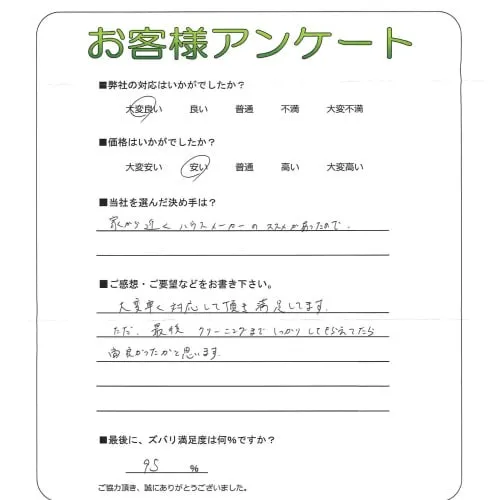 お客様アンケート
■弊社の対応はいかがでしたか?
大変良い 良い 普通 不満 大変不満
■価格はいかがでしたか?
大変安い 安い 普通 高い 大変高い
■当社を選んだ決め手は?
家から近く ハウスメーカーの ススメがあったので.
■ご感想・ご要望などをお書き下さい。
大変早く対応して頂き満足してます.
ただ、最後 クリーニングまで しっかり してもらえてたら
尚良かったかと思います.
■最後に、ズバリ満足度は何%ですか?
95 %
ご協力頂き、誠にありがとうございました。